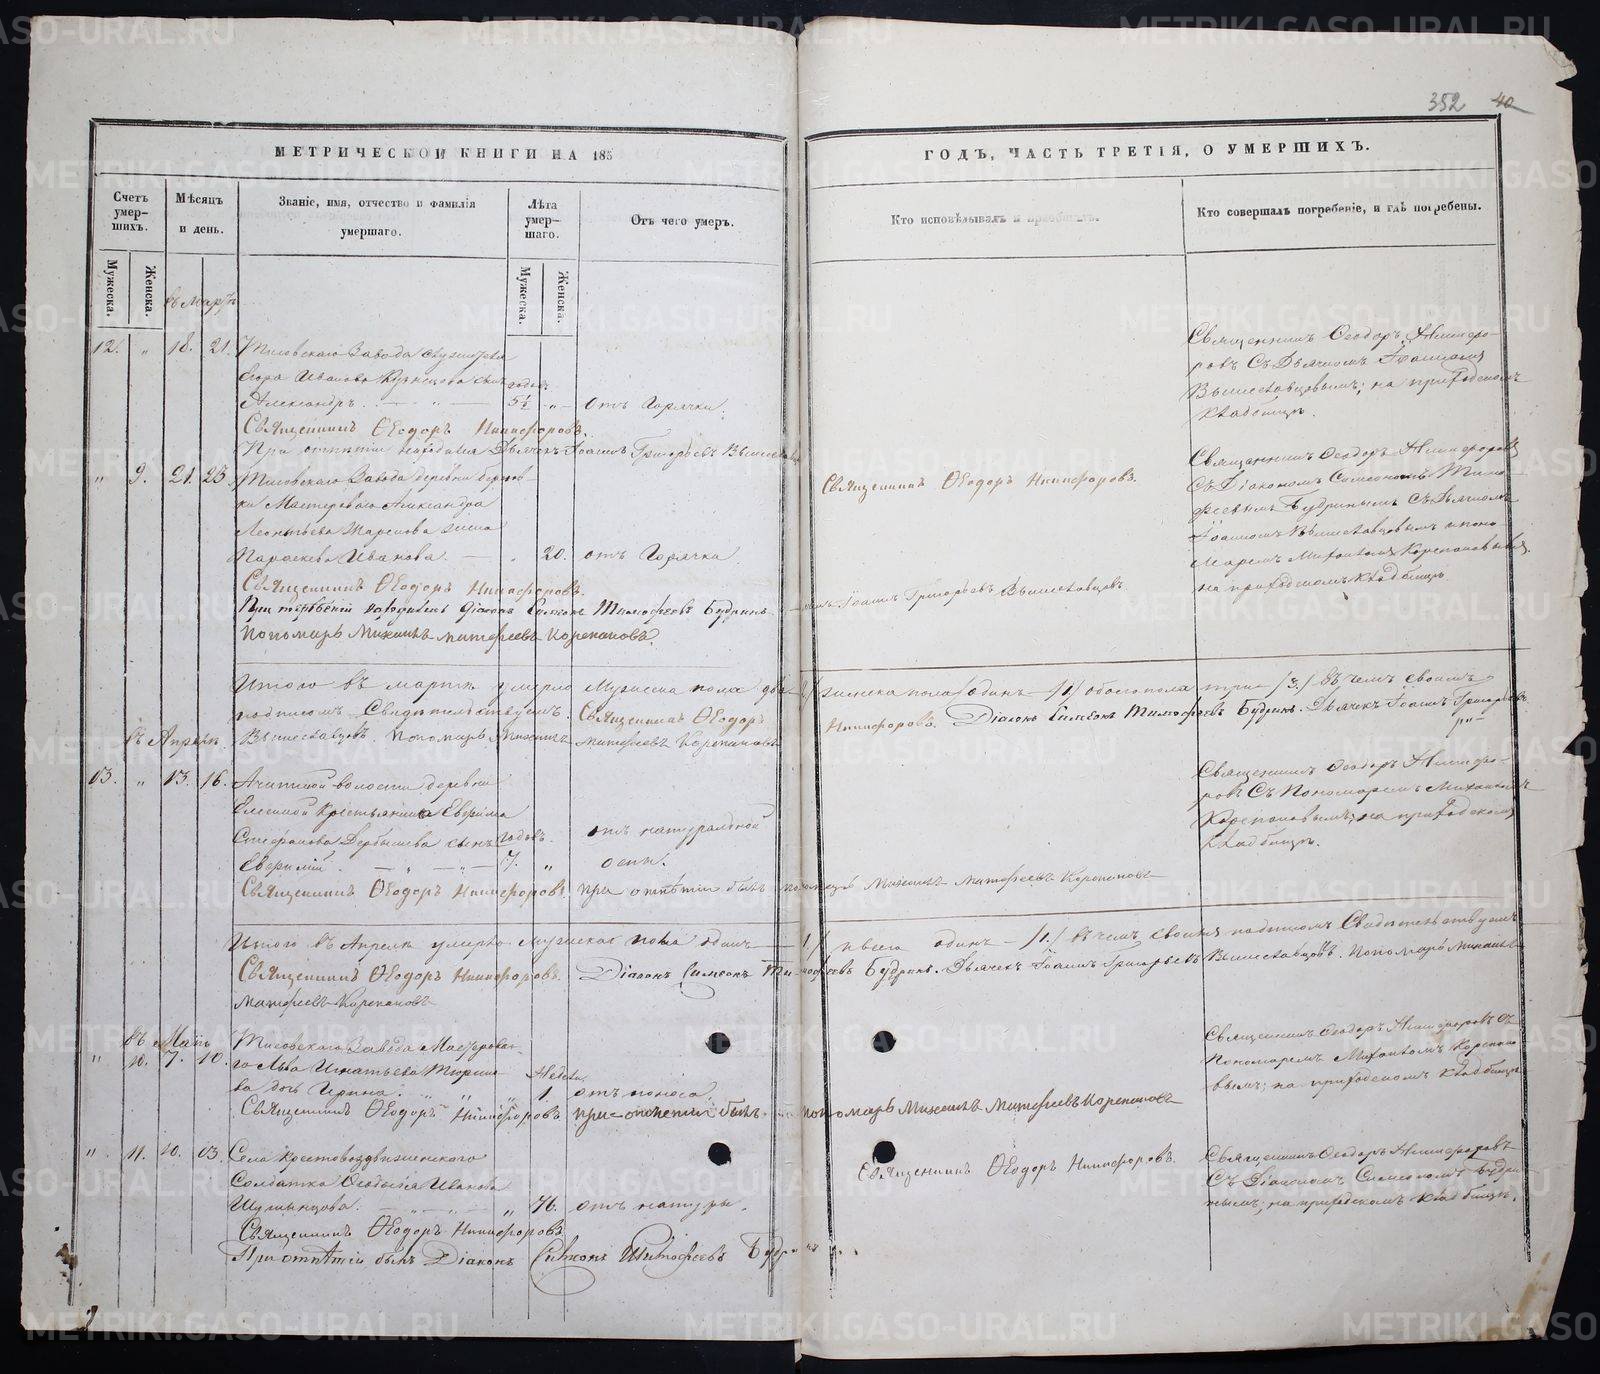 352 40
МЕТРИЧЕСКОЙ КНИГИ НА 185
ГОДЪ, ЧАСТЬ ТРЕТІЯ, О УМЕРШИХЪ.
Счетъ умер-шихъ.
Мѣсяцъ и день.
Званіе, имя, отчество и фамилія умершаго.
Лѣта умер-шаго.
Отъ чего умеръ.
Кто исповѣдывалъ и пріобщалъ.
Кто совершалъ погребеніе, и гдѣ погребены.
Мужеска.
Женска.
Мужеска.
Женска.
въ Мартѣ
12. " 18. 21.
Тисовскаго Завода
Егора Иванова Кузнецова сынъ годовъ
Александръ. — " — 5½ " — отъ Горячки.
Священникъ Ѳеодоръ Никифоровъ.
При отпѣтіи находился Дьячекъ Іоаннъ Григорьевъ Вышеславцовъ
Священникъ Ѳеодоръ Никифо-
ровъ Съ Дьячкомъ Іоанномъ
Вышеславцовымъ; на приходскомъ
кладбищѣ.
" 9. 21. 23.
Тисовскаго Завода деревни
ки Мастероваго Александра
Леонтьева жена
Параскева Иванова. — 20. отъ Горячки
Священникъ Ѳеодоръ Никифоровъ.
При находились Діаконъ Симеонъ Тимофеевъ Будринъ
Іоаннъ Григорьевъ Вышеславцовъ
Пономарь Михаилъ Матфеевъ Корепановъ.
Священникъ Ѳеодоръ Никифоровъ.
Священникъ Ѳеодоръ Никифоровъ
Съ Діакономъ Симеономъ Тимо-
феевымъ Будринымъ Съ Дьячкомъ
Іоанномъ Вышеславцовымъ и поно-
маремъ Михаиломъ Корепановымъ
на приходскомъ кладбищѣ
Итого въ мартѣ умерло Мужеска пола два женска пола одинъ /1/ обоего пола три /3/ въ чемъ своимъ
подписомъ Свидѣтельствуемъ. Священникъ Ѳеодоръ Никифоровъ. Діаконъ Симеонъ Тимофеевъ Будринъ. Дьячекъ Іоаннъ Григорьевъ
Вышеславцовъ. Пономарь Михаилъ Матфеевъ Корепановъ
въ Апрѣлѣ
13. " 13. 16.
Ачитской волости деревни
Крестьянина Евфима
Стефанова Дербышева сынъ годовъ. отъ натуральной
Евфимій. — " — 7. " оспы.
Священникъ Ѳеодоръ Никифоровъ. при отпѣтіи былъ пономарь Михаилъ Матфеевъ Корепановъ
Священникъ Ѳеодоръ Никифо-
ровъ Съ Пономаремъ Михаиломъ
Корепановымъ; на приходскомъ
кладбищѣ.
Итого въ Апрѣлѣ умерло мужеска пола одинъ — 1./ всего одинъ — /1./ въ чемъ своимъ подписомъ Свидѣтельствуемъ
Священникъ Ѳеодоръ Никифоровъ. Діаконъ Симеонъ Тимофеевъ Будринъ. Дьячекъ Іоаннъ Григорьевъ Вышеславцовъ. Пономарь Михаилъ
Матфеевъ Корепановъ
въ Маѣ
" 10. 7. 10.
Тисовскаго Завода Мастерова-
го Льва Игнатьева Тюрики-
ва дочь Ирина. " " " Недели 1. отъ поноса.
Священникъ Ѳеодоръ Никифоровъ. при отпѣтіи былъ пономарь Михаилъ Матфеевъ Корепановъ
Священникъ Ѳеодоръ Никифоровъ Съ
Пономаремъ Михаиломъ Корепано-
вымъ; на приходскомъ кладбищѣ
" 11. 10. 13.
Села Крестовоздвиженского
Солдатка Иванова
Шумынцова. — " — " 76. отъ натуры.
Священникъ Ѳеодоръ Никифоровъ
При отпѣтіи былъ Діаконъ Симеонъ Тимофеевъ Будринъ
Священникъ Ѳеодоръ Никифоровъ.
Священникъ Ѳеодоръ Никифоровъ
Съ Діакономъ Симеономъ Будри-
нымъ; на приходскомъ кладбищѣ.
METRIKI.GASO-URAL.RU